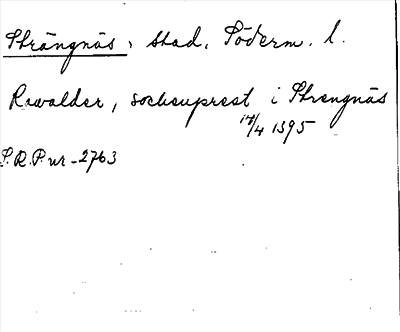 Strängnäs, stad, Söderm. l.
Rawalder, sockenprest i Strengnäs
14/4 1395
S.R.P. nr 2763